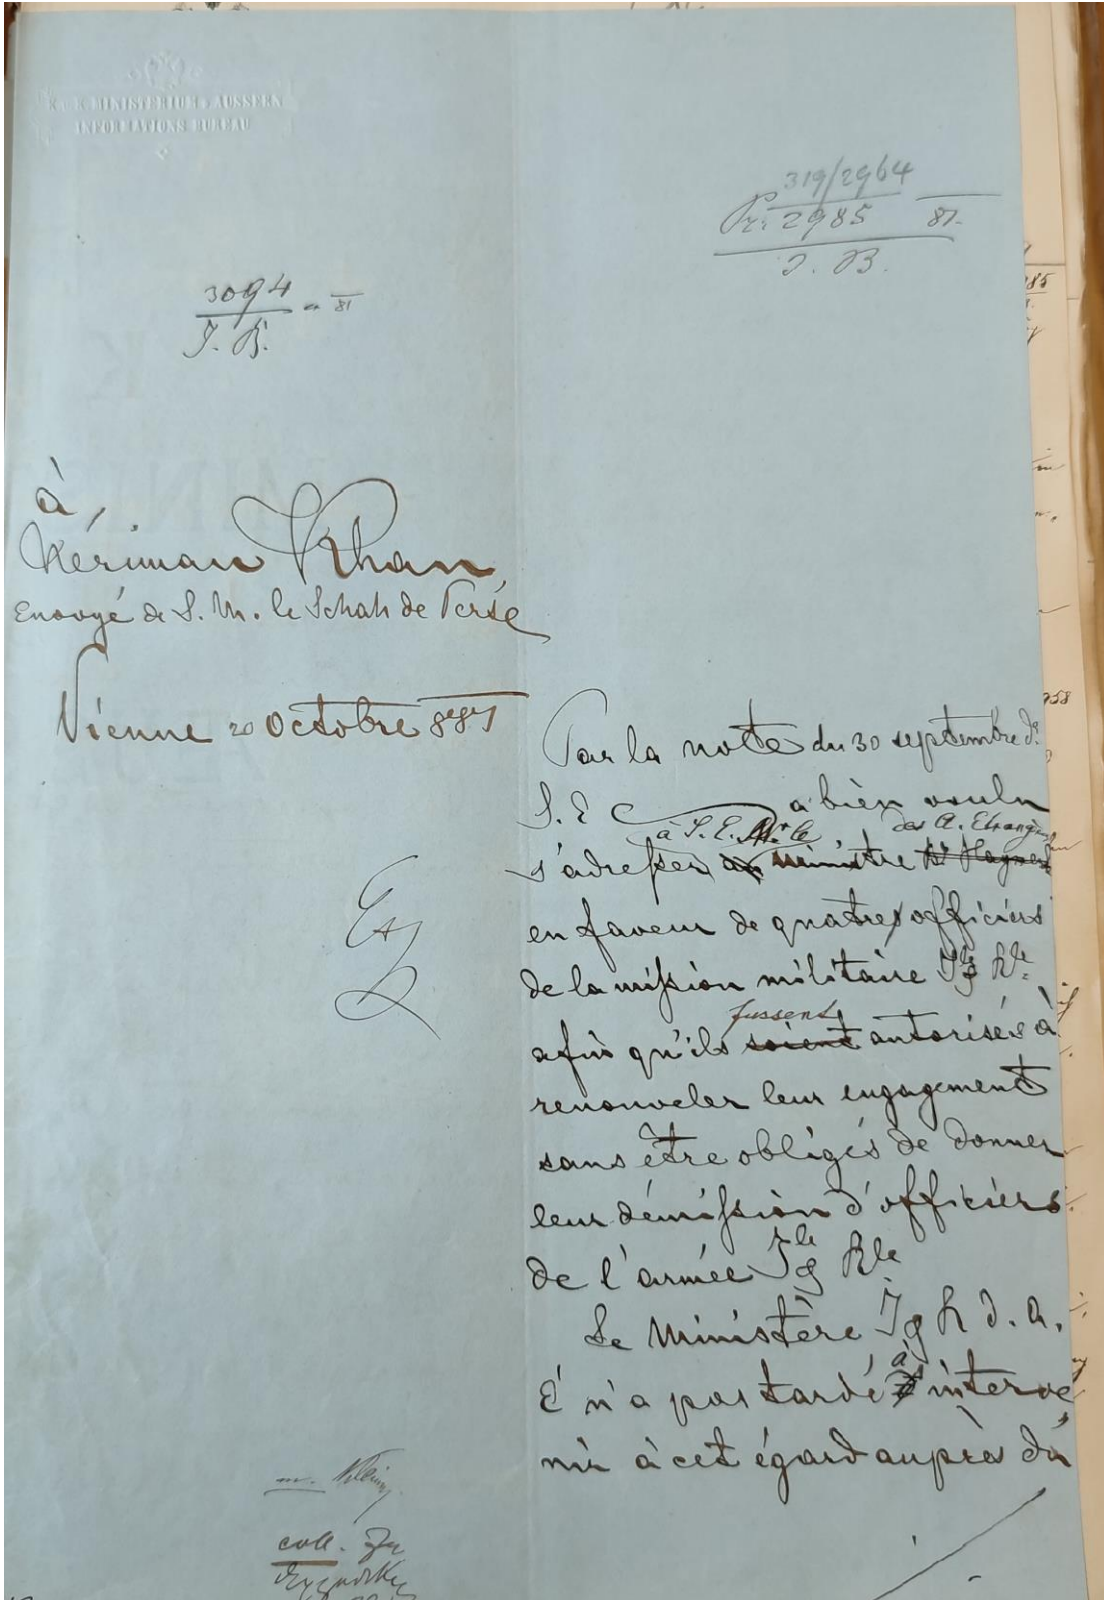 K. u. K. MINISTERIUM D. AUSSERN
INFORMATIONS BUREAU
319/2964
Pr: 2985 81.
I. B.
3094 81
I. B.
à
Nériman Khan
Envoyé de S. M. le Schah de Perse
Vienne 20 Octobre 881
Par la note du 30 septembre dr
S. E a bien voulu
à S. E. Mr. le des A. Etrangères
s'adresser au ministre Br Haymerle
en faveur de quatre officiers
de la mission militaire Ile Rle
afin qu'ils soient autorisés à
fussent
renouveler leur engagement
sans être obligés de donner
leur démission d'officiers
de l'armée Ile & Rle
Le Ministère I & R d. A.
E n'a pas tardé à interve
nir à cet égard auprès du
coll.